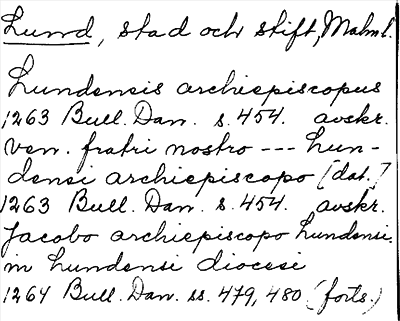 Lund, stad och stift, Malml.
Lundensis archiepiscopus
1263 Bull. Dan. s. 454. avskr.
ven. fratri nostro --- Lun-
densi archiepiscopo [dat.]
1263 Bull. Dan. s. 454. avskr.
Jacobo archiepiscopo Lundensi.
in Lundensi diocesi
1264 Bull. Dan. ss. 479, 480 (forts.)